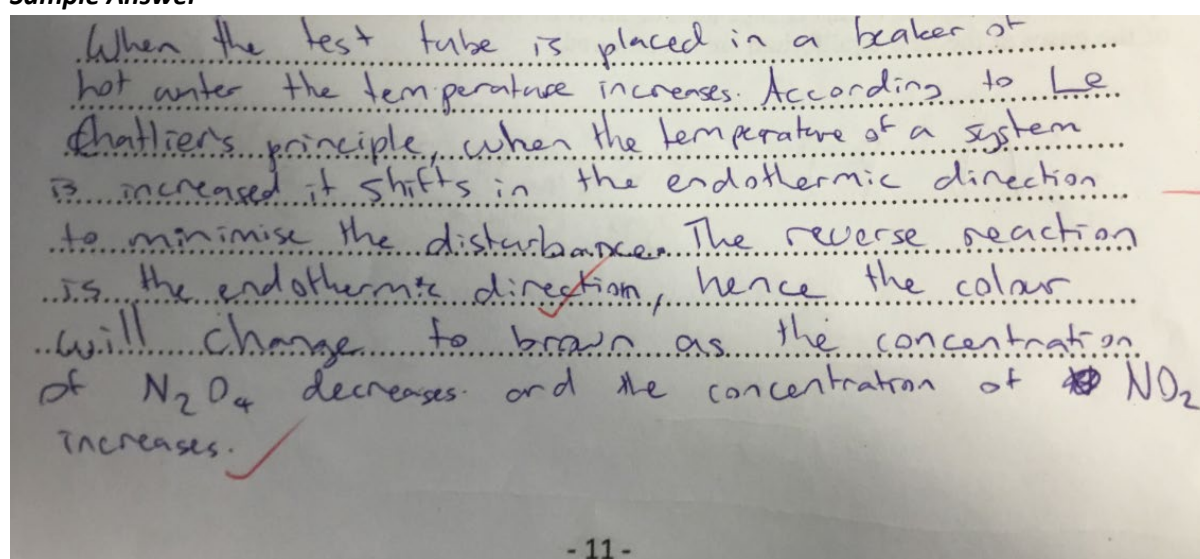 Sample Answer
When the test tube is placed in a beaker of
hot water the temperature increases. According to Le
Chatlier's principle, when the temperature of a system
is increased it shifts in the endothermic direction
to minimise the disturbance. The reverse reaction
is the endothermic direction, hence the colour
will change to brown as the concentration
of N₂O₄ decreases. and the concentration of NO₂
increases.
- 11 -